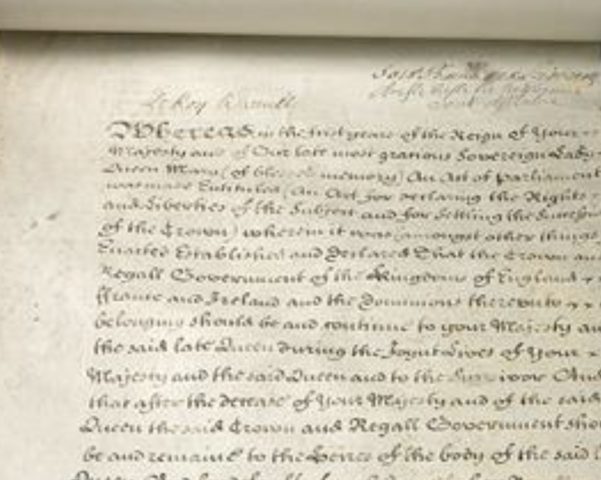 Le Roy le veult
Whereas in the first yeare of the Reign of Your
Majesty and of Our late most gracious Sovereign Lady
Queen Mary (of blessed memory) An Act of Parliament
was made Entituled (An Act for declaring the Rights
and Liberties of the Subject and for setling the Succession
of the Crown) wherein it was (amongst other things
Enacted Established and Declared That the Crown and
Regall Government of the Kingdoms of England
ffrance and Ireland and the Dominions thereunto
belonging should be and continue to your Majesty and
the said late Queen during the Joynt Lives of Your
Majesty and the said Queen and to the Survivor And
that after the decease of Your Majesty and of the said
Queen the said Crown and Regall Government should
be and remain to the Heires of the body of the said l